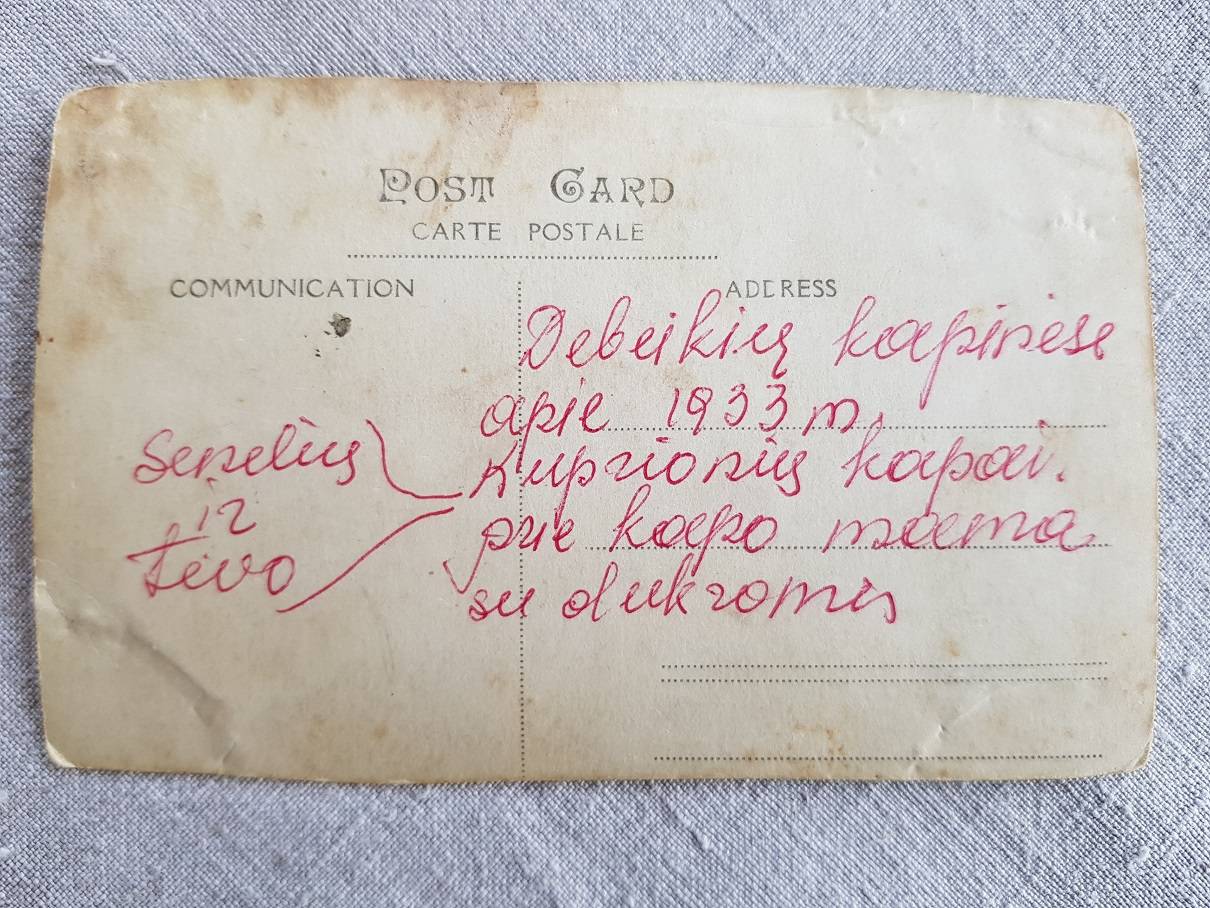 POST CARD
CARTE POSTALE
COMMUNICATION
ADDRESS
Debeikių kapinėse
apie 1933 m.
Kuprionių kapai.
prie kapo mama
su dukromis
Senelių
ir
tėvo